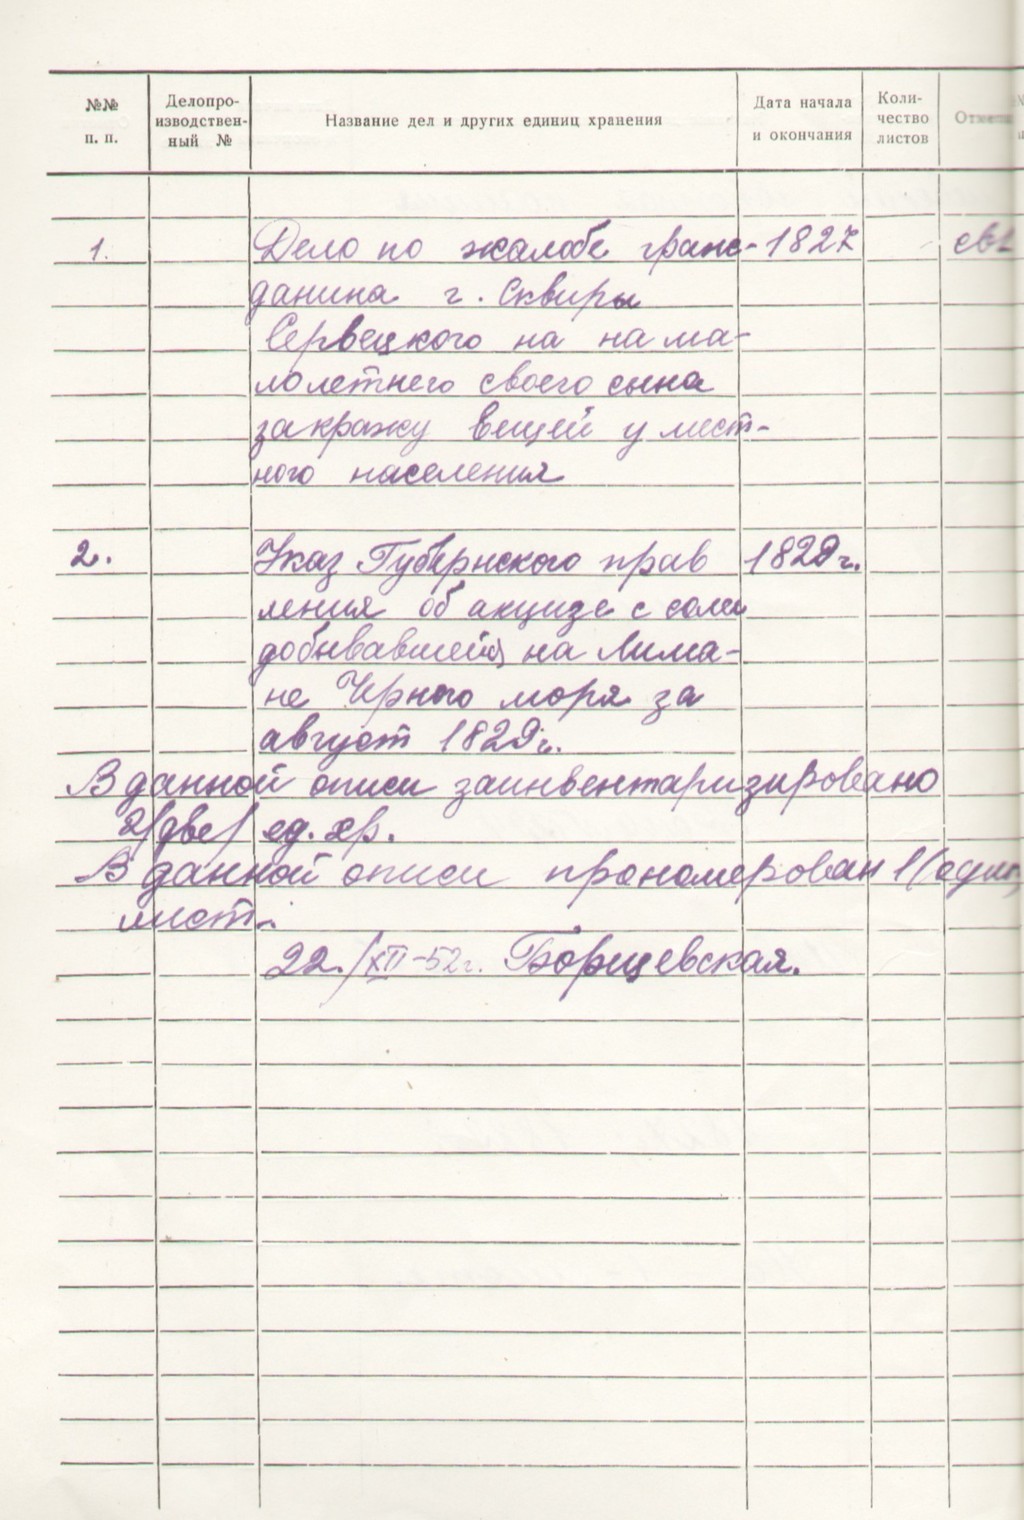 №№ п. п.
Делопроизводственный №
Название дел и других единиц хранения
Дата начала и окончания
Количество листов
1. Дело по жалобе граж- 1827
данина г. Сквиры
Сервецкого на на ма-
лолетнего своего сына
за кражу вещей у мест-
ного населения
2. Указ Губернского прав 1829 г.
ления об акцизе с соли
добывавшейся на Лима-
не Черного моря за
август 1829 г.
В данной описи заинвентаризировано
2/две/ ед. хр.
В данной описи прономерован 1(один)
лист.
22./XII-52г. Борщевская.